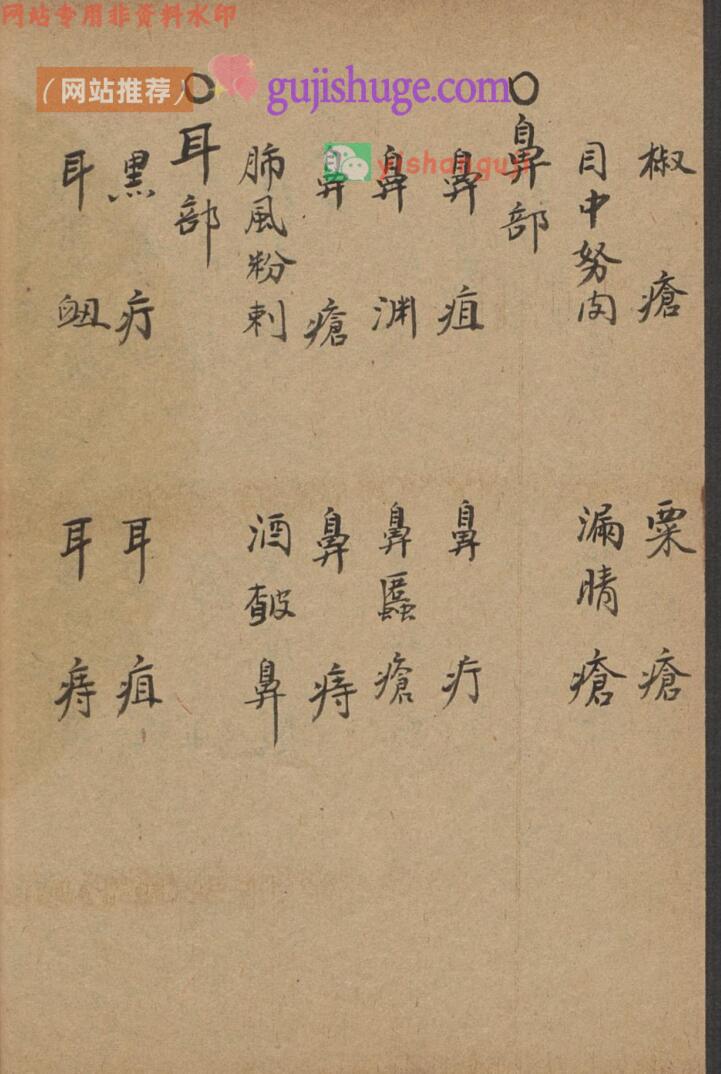 网站专用非资料水印
（网站推荐）
gujishuge.com
yishanguji
椒瘡 粟瘡
目中努肉 漏睛瘡
○鼻部
鼻疽 鼻疔
鼻淵 鼻䘌瘡
鼻瘡 鼻痔
肺風粉刺 酒皶鼻
○耳部
黑疔 耳疽
耳衂 耳痔